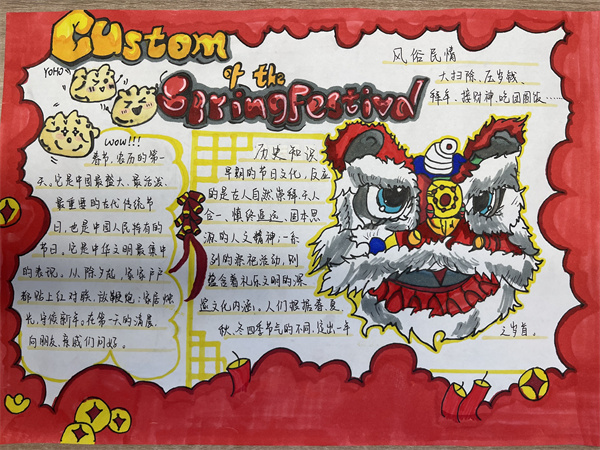 Custom
of the
Spring Festival
YOHO
WOW!!!
春节，农历的第一
天。它是中国最盛大、最活泼、
最重要的古代传统节
日，也是中国人民特有的
节日。它是中华文明最集中
的表现。从除夕起，家家户户
都贴上红对联，放鞭炮，家居烛
光，守候新年。在第一天的清晨，
向朋友、亲戚们问好。
历史知识
早期的节日文化，反应
的是古人自然崇拜、天人
合一、慎终追远、固本思
源的人文精神，一系
列的祭祀活动，则
蕴含着礼乐文明的深
邃文化内涵。人们根据春、夏、
秋、冬四季节气的不同，定出一年
之岁首。
风俗民情
大扫除、压岁钱、
拜年、接财神、吃团圆饭……